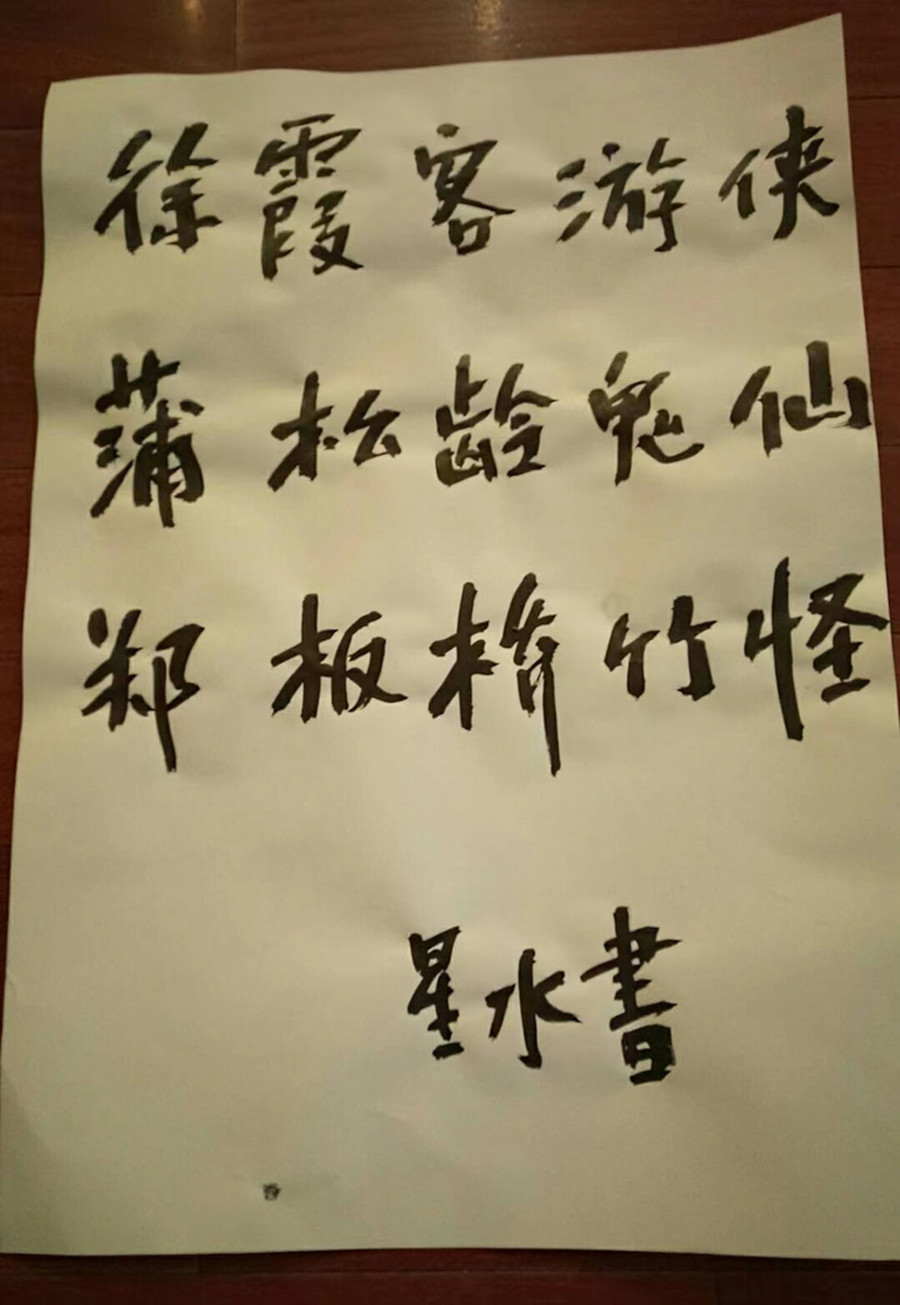 徐霞客游侠
蒲松龄鬼仙
郑板桥竹怪
星水書